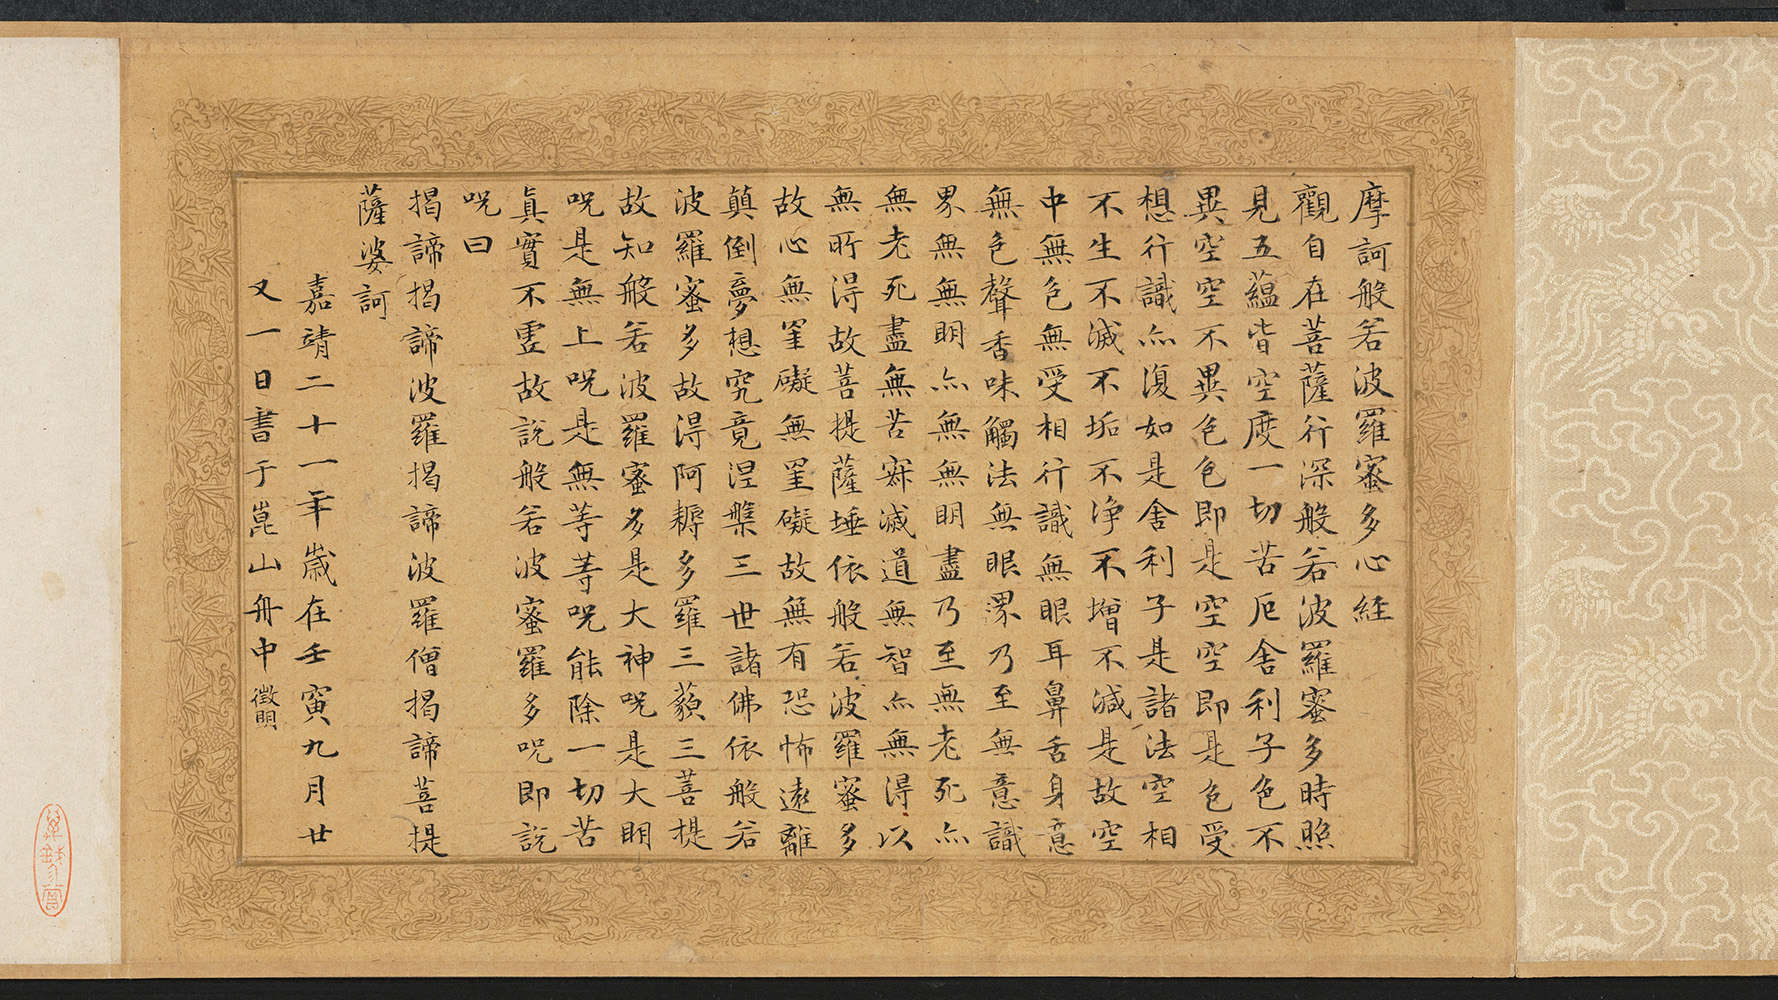 摩訶般若波羅蜜多心經
觀自在菩薩行深般若波羅蜜多時照
見五蘊皆空度一切苦厄舍利子色不
異空空不異色色即是空空即是色受
想行識亦復如是舍利子是諸法空相
不生不滅不垢不淨不增不減是故空
中無色無受相行識無眼耳鼻舌身意
無色聲香味觸法無眼界乃至無意識
界無無明亦無無明盡乃至無老死亦
無老死盡無苦寂滅道無智亦無得以
無所得故菩提薩埵依般若波羅蜜多
故心無罣礙無罣礙故無有恐怖遠離
顛倒夢想究竟涅槃三世諸佛依般若
波羅蜜多故得阿耨多羅三藐三菩提
故知般若波羅蜜多是大神呪是大明
呪是無上呪是無等等呪能除一切苦
真實不虛故說般若波蜜羅多呪即說
呪曰
揭諦揭諦波羅揭諦波羅僧揭諦菩提
薩婆訶
嘉靖二十一年歲在壬寅九月廿
又一日書于崑山舟中徵明